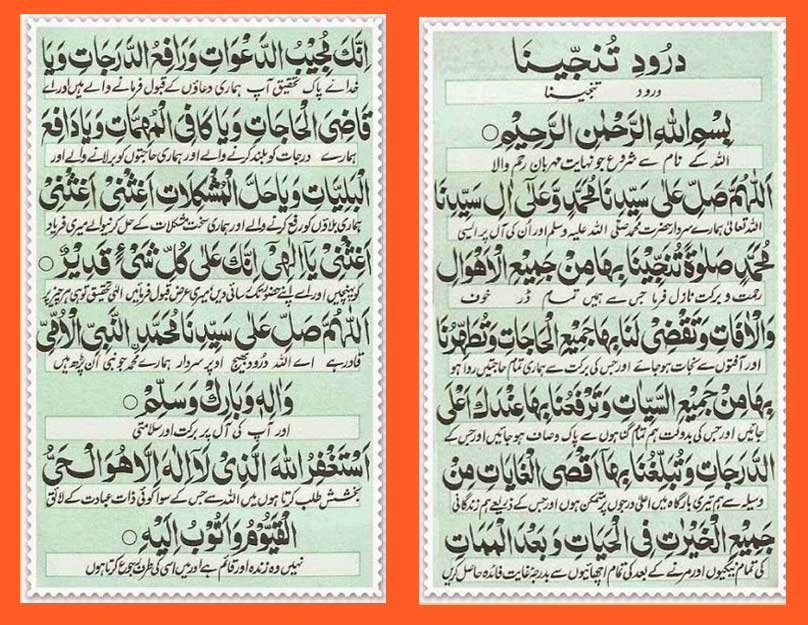 درود تُنجِّینَا
درود تنجینا
بِسْمِ اللّٰهِ الرَّحْمٰنِ الرَّحِیْمِ ○
اللہ کے نام سے شروع جو نہایت مہربان رحم والا
اَللّٰهُمَّ صَلِّ عَلٰی سَیِّدِنَا مُحَمَّدٍ وَّعَلٰی اٰلِ سَیِّدِنَا
اللہ تعالیٰ ہمارے سردار حضرت محمد صلی اللہ علیہ وسلم اور اُن کی آل پر ایسی
مُحَمَّدٍ صَلٰوةً تُنَجِّیْنَا بِهَا مِنْ جَمِیْعِ الْاَهْوَالِ
رحمت و برکت نازل فرما جس سے ہمیں تمام ڈر خوف
وَالْاٰفَاتِ وَتَقْضِیْ لَنَا بِهَا جَمِیْعَ الْحَاجَاتِ وَتُطَهِّرُنَا
اور آفتوں سے نجات ہوجائے اور جس کی برکت سے ہماری تمام حاجتیں روا ہو
بِهَا مِنْ جَمِیْعِ السَّیِّاٰتِ وَتَرْفَعُنَا بِهَا عِنْدَكَ اَعْلَی
جائیں اور جس کی بدولت ہم تمام گناہوں سے پاک وصاف ہوجائیں اور جس کے
الدَّرَجَاتِ وَتُبَلِّغُنَا بِهَا اَقْصَی الْغَایَاتِ مِنْ
وسیلہ سے ہم تیری بارگاہ میں اعلیٰ درجوں پر متمکن ہوں اور جس کے ذریعے ہم زندگانی
جَمِیْعِ الْخَیْرَاتِ فِی الْحَیَاتِ وَبَعْدَ الْمَمَاتِ
کی تمام نیکیوں اور مرنے کے بعد کی تمام اچھائیوں سے بدرجہ غایت فائدہ حاصل کریں
اِنَّكَ مُجِیْبُ الدَّعْوَاتِ وَرَافِعُ الدَّرَجَاتِ وَیَا
خدائے پاک تحقیق آپ ہماری دعاؤں کے قبول فرمانے والے ہیں اور اے
قَاضِیَ الْحَاجَاتِ وَیَا كَافِیَ الْمُهِمَّاتِ وَیَا دَافِعَ
ہمارے درجات کو بلند کرنے والے اور ہماری حاجتوں کو بر لانے والے اور
الْبَلِیَّاتِ وَیَا حَلَّ الْمُشْكِلَاتِ اَغِثْنِیْ اَغِثْنِیْ
ہماری بلاؤں کو رفع کرنے والے اور ہماری سخت مشکلات کے حل کرنیوالے میری فریاد
اَغِثْنِیْ یَا اِلٰهِیْ اِنَّكَ عَلٰی كُلِّ شَیْءٍ قَدِیْرٌ ○
کو پہنچیں اور اے اپنے حضور تک رسائی دیں میری عرض قبول فرمائیں الٰہی تحقیق تو ہی ہر چیز پر
اَللّٰهُمَّ صَلِّ عَلٰی سَیِّدِنَا مُحَمَّدٍ النَّبِیِّ الْاُمِّیِّ
قادر ہے اے اللہ درود بھیج اوپر سردار ہمارے محمد جو نبی اَن پڑھ ہیں
وَاٰلِهٖ وَبَارِكْ وَسَلِّمْ ○
اور آپ کی آل پر برکت اور سلامتی
اَسْتَغْفِرُ اللّٰهَ الَّذِیْ لَا اِلٰهَ اِلَّا هُوَ الْحَیُّ
بخشش طلب کرتا ہوں میں اللہ سے جس کے سوا کوئی ذات عبادت کے لائق
الْقَیُّوْمُ وَاَتُوْبُ اِلَیْهِ ○
نہیں وہ زندہ اور قائم ہے اور میں اسی کی طرف رجوع کرتا ہوں